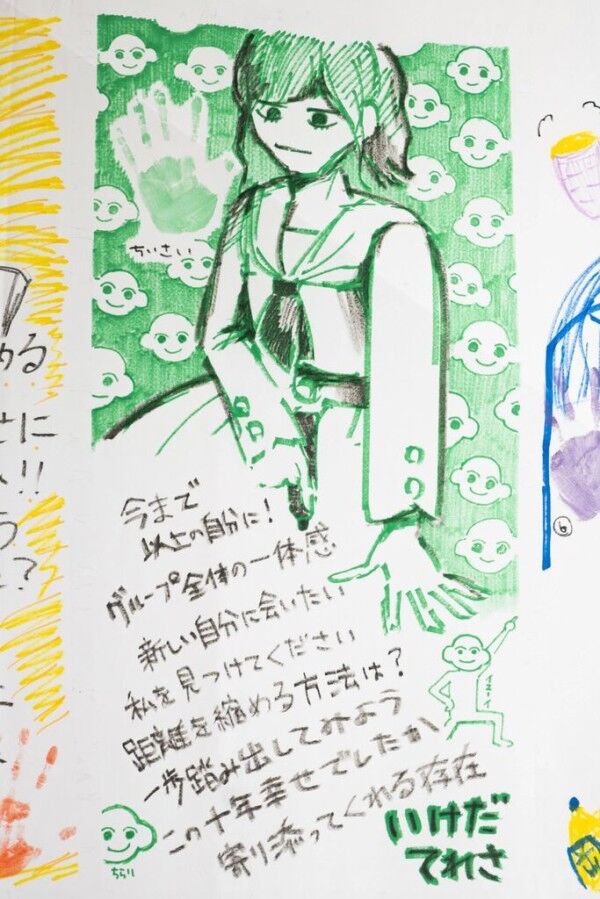 ちいさい
今まで
以上の自分に!
グループ全体の一体感
新しい自分に会いたい
私を見つけてください
距離を縮める方法は?
一歩踏み出してみよう
この十年幸せでしたか
寄り添ってくれる存在
イエーイ
いけだ
てれさ
ちらり
める
に
!!
う
?
6